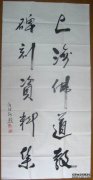 上海佛道教
碑刻資料集